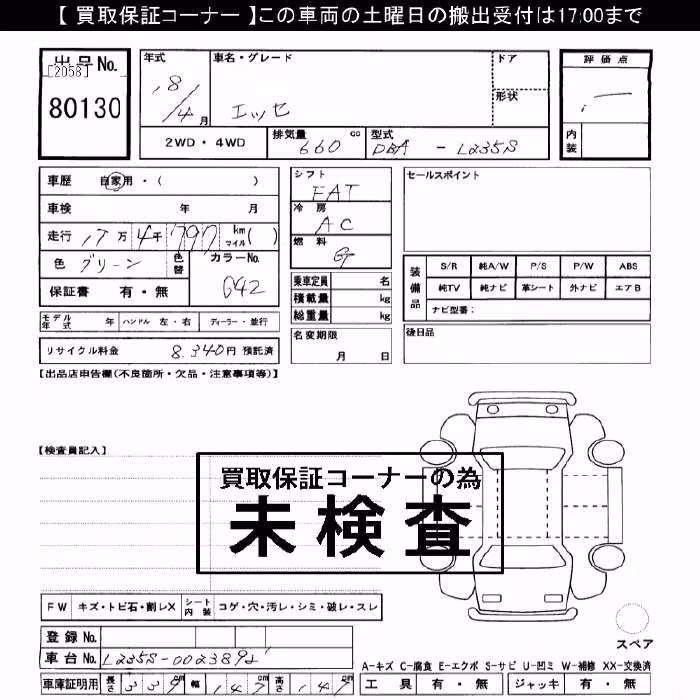 【 買取保証コーナー 】この車両の土曜日の搬出受付は17:00まで
出品No.
[2058]
80130
年式
18/4月
車名・グレード
エッセ
ドア
形状
評価点
内装
2WD・4WD
排気量 660 cc
型式 DBA - L235S
車歴 自家用・( )
車検 年 月
走行 17万 4千 790 km マイル( )
色 グリーン
色替
カラーNo.
G42
保証書 有・無
シフト
FAT
冷房
AC
燃料
G
乗車定員 名
積載量 kg
総重量 kg
セールスポイント
装備品
S/R 純A/W P/S P/W ABS
純TV 純ナビ 革シート 外ナビ エアB
ナビ型番:
モデル年式 年 ハンドル 左・右 ディーラー・並行
名変期限
月 日
後日品
リサイクル料金 8,340円 預託済
【出品店申告欄(不良箇所・欠品・注意事項等)】
【検査員記入】
買取保証コーナーの為
未検査
FW キズ・トビ石・割レX シート内装 コゲ・穴・汚レ・シミ・破レ・スレ
スペア
登録No.
車台No. L235S-0023892
A-キズ C-腐食 E-エクボ S-サビ U-凹ミ W-補修 XX-交換済
車庫証明用 長さ 339cm 幅 147cm 高さ 147cm
工具 有・無 ジャッキ 有・無